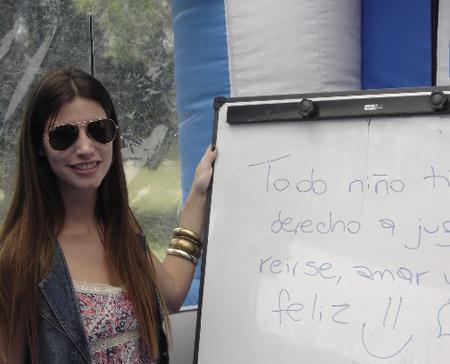 Todo niño ti
derecho a jug
reirse, amar y
feliz !!